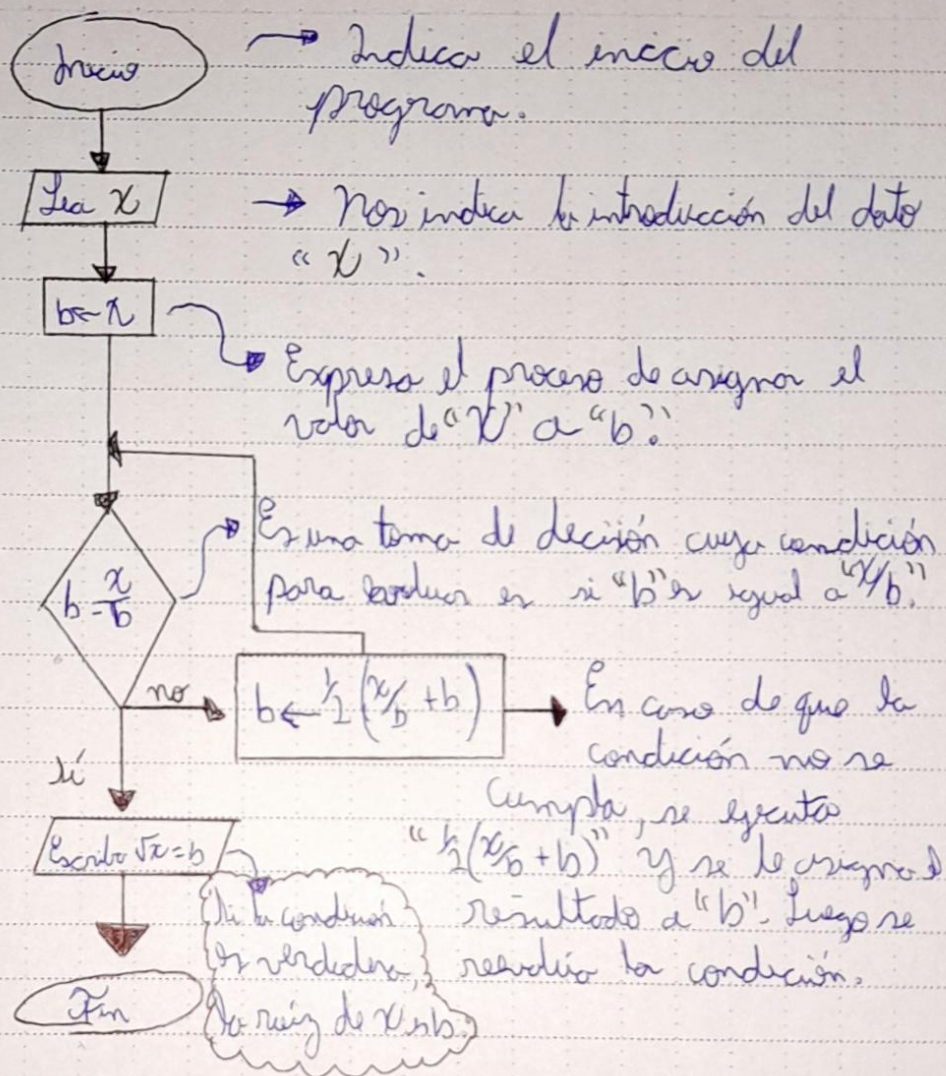 Inicio
→ Indica el inicio del
programa.
Lea X
→ Nos indica la introducción del dato
"X".
b←x
Expresa el proceso de asignar el
valor de "X" a "b".
b = x/b
Es una toma de decisión cuya condición
para evaluar es si "b" es igual a "x/b".
no
b ← 1/2 (x/b + b)
En caso de que la
condición no se
cumpla, se ejecuta
"1/2(x/b + b)" y se le asigna el
resultado a "b". Luego se
reevalúa la condición.
sí
Escriba √x = b
Si la condición
es verdadera,
la raíz de X es b.
Fin